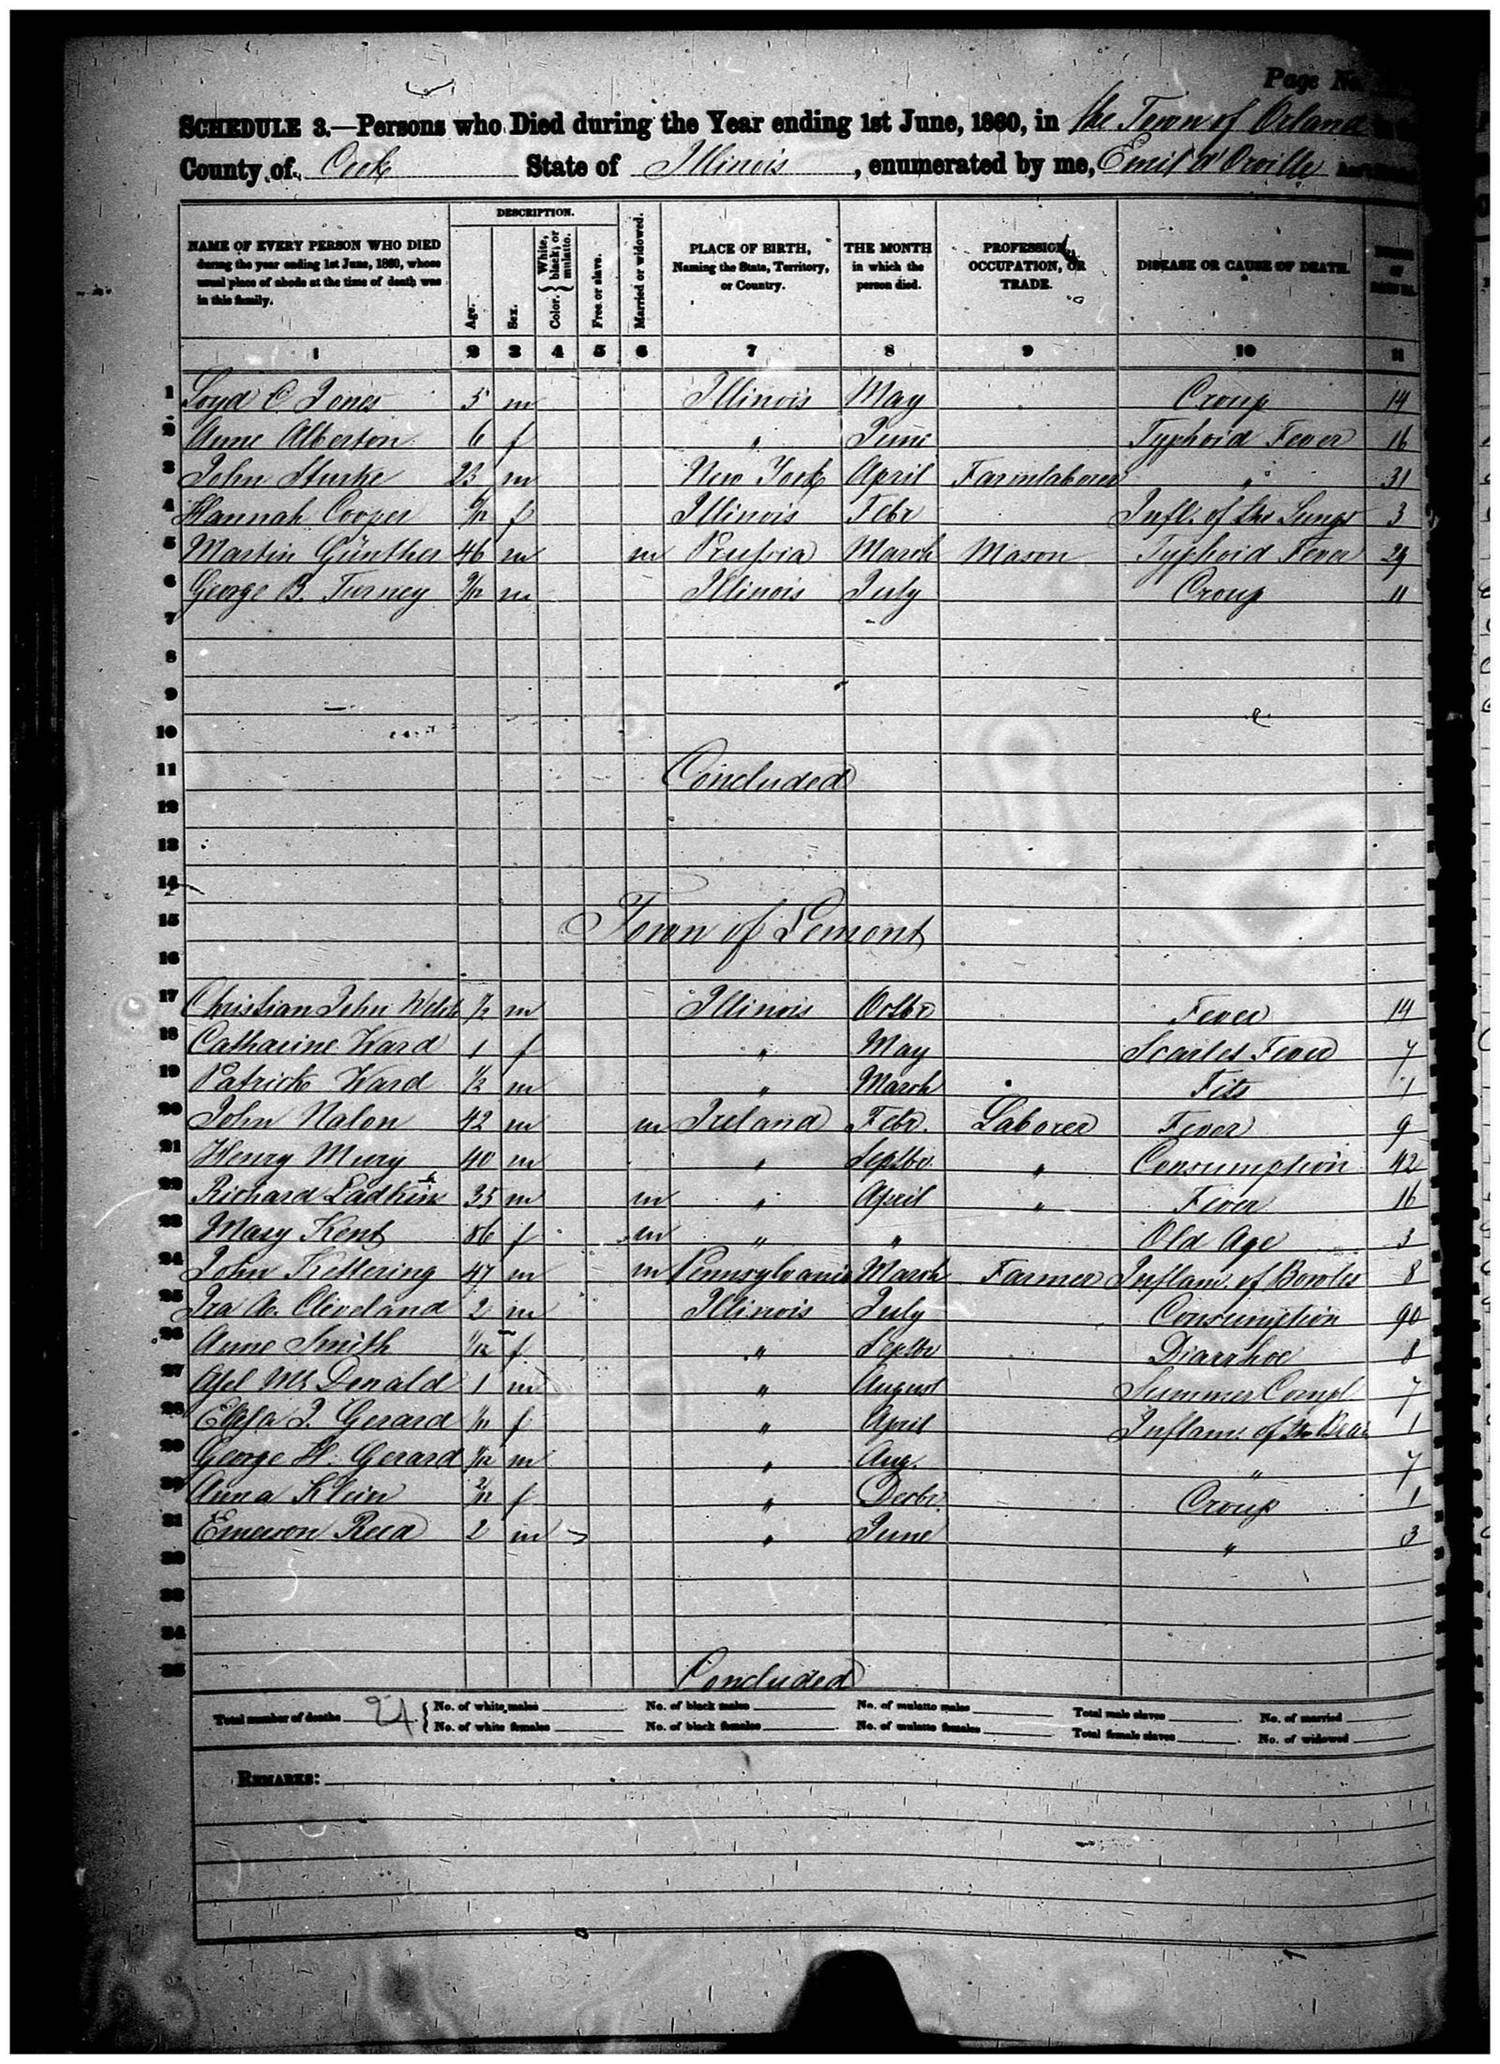 Page No.
SCHEDULE 3.—Persons who Died during the Year ending 1st June, 1860, in the Town of Orland
County of Cook State of Illinois, enumerated by me, Emil d'Orville
DESCRIPTION.
NAME OF EVERY PERSON WHO DIED during the year ending 1st June, 1860, whose usual place of abode at the time of death was in this family. Age. Sex. Color. { White, black, or mulatto. Free or slave. Married or widowed. PLACE OF BIRTH, Naming the State, Territory, or Country. THE MONTH in which the person died. PROFESSION, OCCUPATION, OR TRADE. DISEASE OR CAUSE OF DEATH.
1 2 3 4 5 6 7 8 9 10 11
1 Loyd C. Jones 5 m Illinois May Croup 14
2 Anne Alberton 6 f " June Typhoid Fever 16
3 John 23 m New York April Farmlaborer " 31
4 Hannah Cooper f Illinois Febr Infl. of the Lungs 3
5 Martin Günther 46 m m Prussia March Mason Typhoid Fever 29
6 George B. Turney m Illinois July Croup 11
7
8
9
10
11 Concluded
12
13
14
15 Town of Lemont
16
17 Christian John 1/2 m Illinois Octbr Fever 14
18 Catharine Ward 1 f " May Scarlet Fever 7
19 Patrick Ward 1/2 m " March Fits 1
20 John Nalon 42 m m Ireland Febr. Laborer Fever 9
21 Henry Mury 40 m " Septbr " Consumption 42
22 Richard 35 m m " April " Fever 16
23 Mary Kent 86 f m " " Old Age 3
24 John Kettering 47 m m Pennsylvania March Farmer Inflam. of Bowles 8
25 Ira A. Cleveland 2 m Illinois July Consumption 90
26 Anne Smith 1/12 f " Septbr Diarrhoe 8
27 Mc Donald 1 m " August Summer Compl 7
28 J. Gerard f " April Inflam. of the 1
29 George H. Gerard 1/12 m " Aug. " 7
30 Anna Klein 2/12 f " Decbr. Croup 1
31 Emerson Reed 2 m " June " 3
32
33
34
35 Concluded
Total number of deaths 21 { No. of white males No. of black males No. of mulatto males Total male slaves No. of married
No. of white females No. of black females No. of mulatto females Total female slaves No. of widowed
REMARKS: